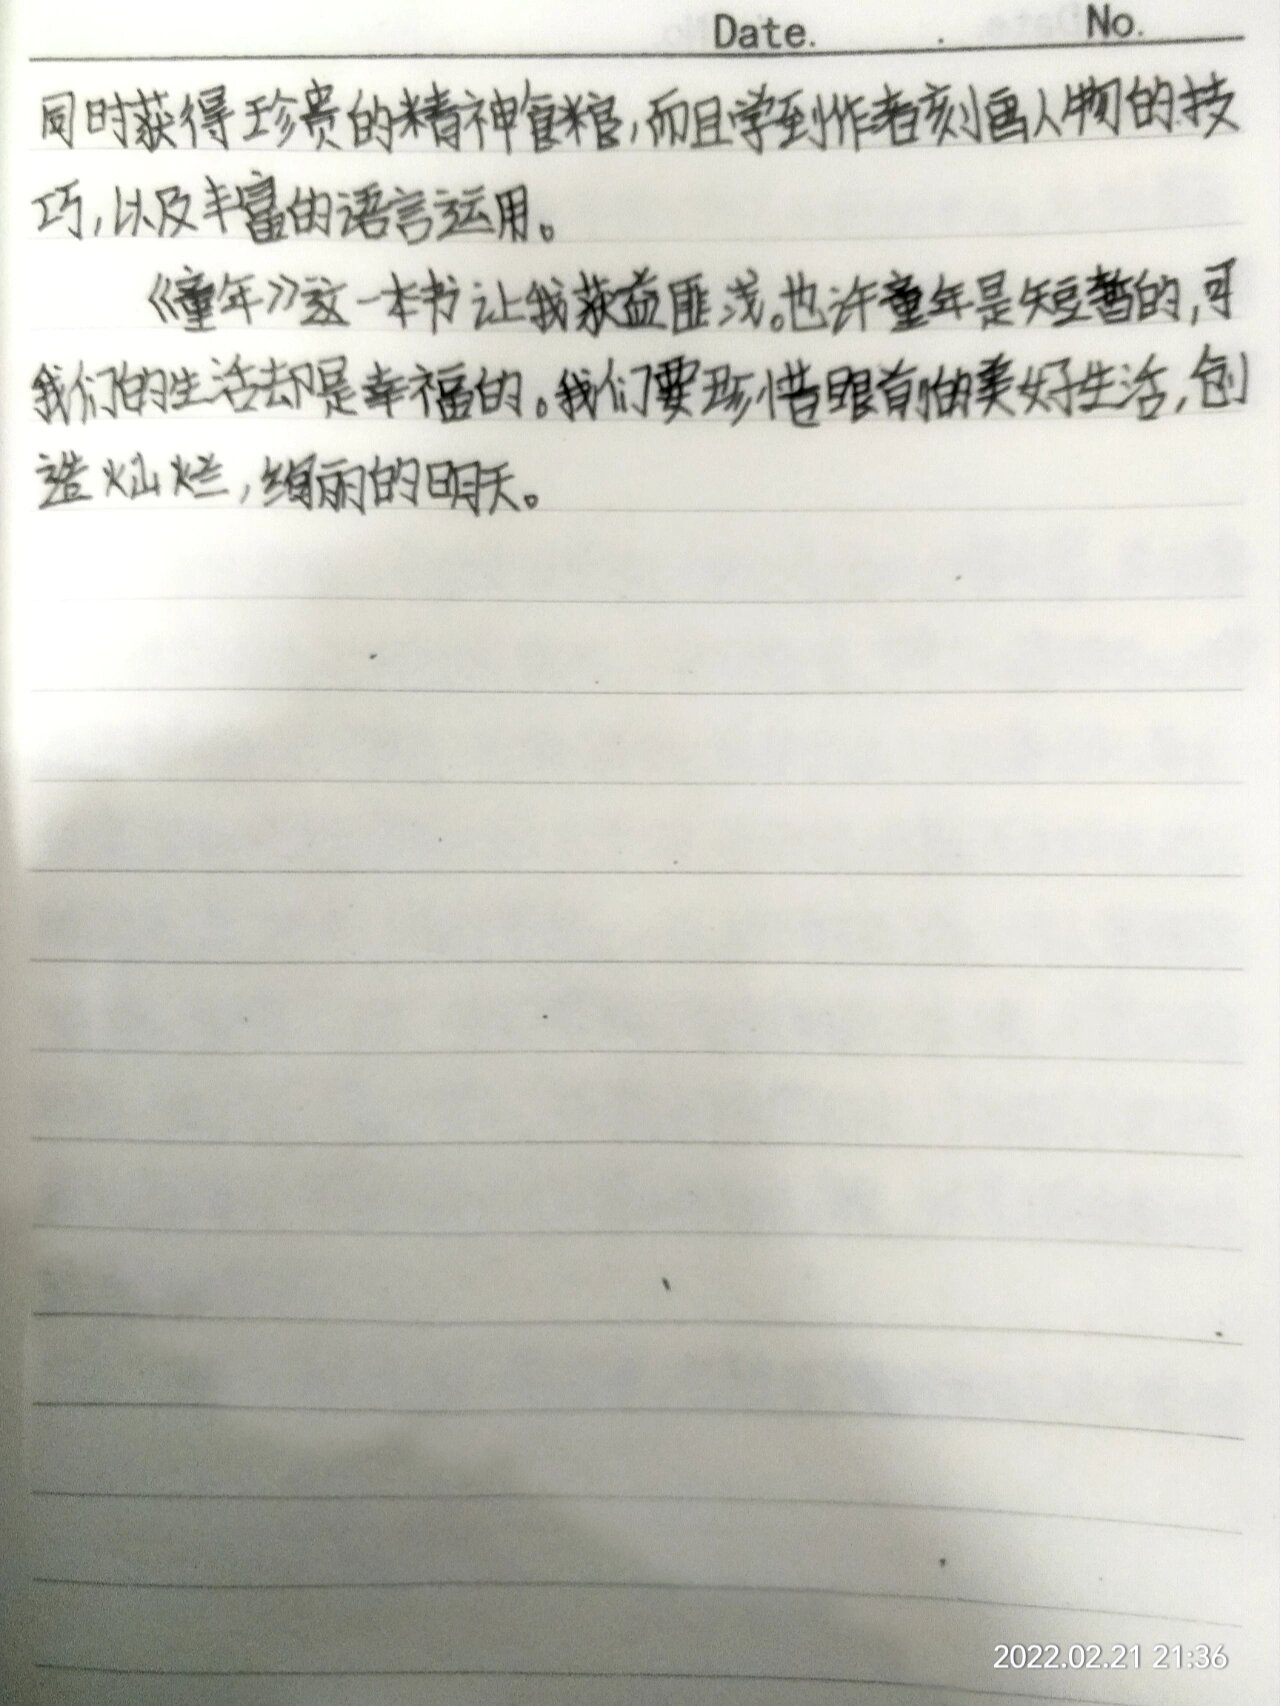 Date. No.
同时获得珍贵的精神食粮,而且学到作者刻画人物的技
巧,以及丰富的语言运用。
《童年》这一本书让我获益匪浅。也许童年是短暂的,可
我们的生活却是幸福的。我们要珍惜眼前的美好生活,创
造灿烂,绚丽的明天。
2022.02.21 21:36